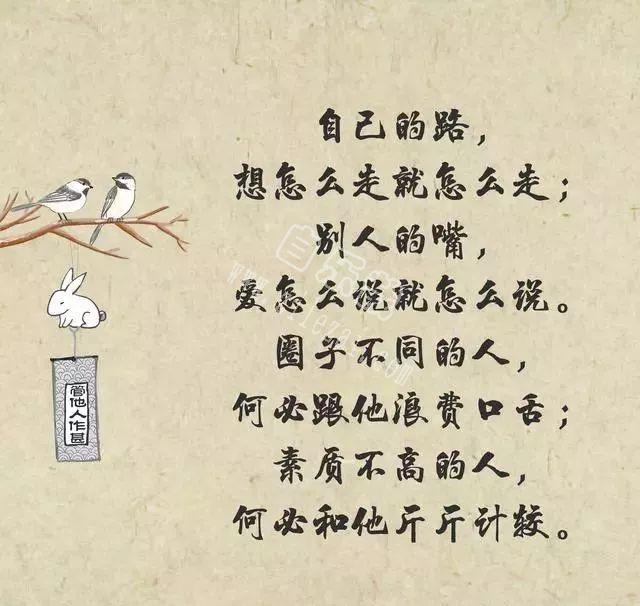 自己的路，
想怎么走就怎么走；
别人的嘴，
爱怎么说就怎么说。
圈子不同的人，
何必跟他浪费口舌；
素质不高的人，
何必和他斤斤计较。
管他人作甚